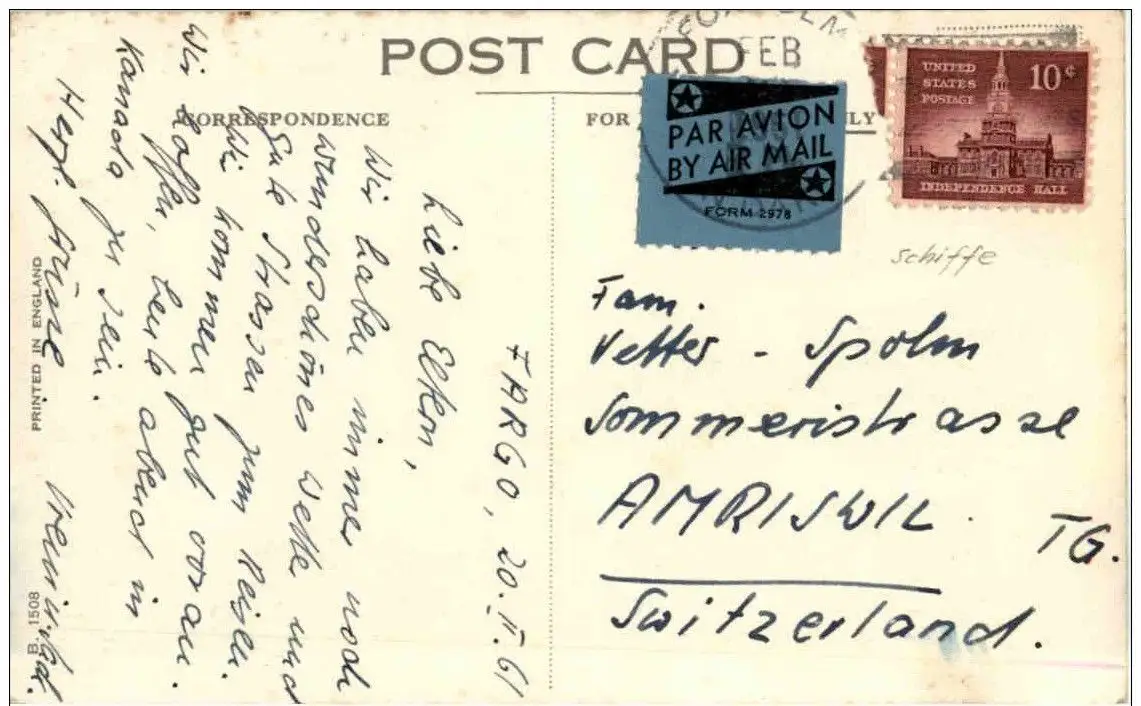 POST CARD
CORRESPONDENCE
FOR
LY
FEB
PAR AVION
BY AIR MAIL
FORM 2978
UNITED
STATES
POSTAGE
10¢
INDEPENDENCE HALL
schiffe
FARGO, 20. II. 61
Liebe Eltern,
Wir haben immer noch
wunderschönes Wetter und
gute Strassen zum Reisen.
Wir kommen gut voran.
Wir hoffen, heute abend in
Kanada zu sein.
Herzl. Grüsse
Fam.
Vetter - Spohn
Sommeristrasse
AMRISWIL TG.
Switzerland.
PRINTED IN ENGLAND
B. 1508